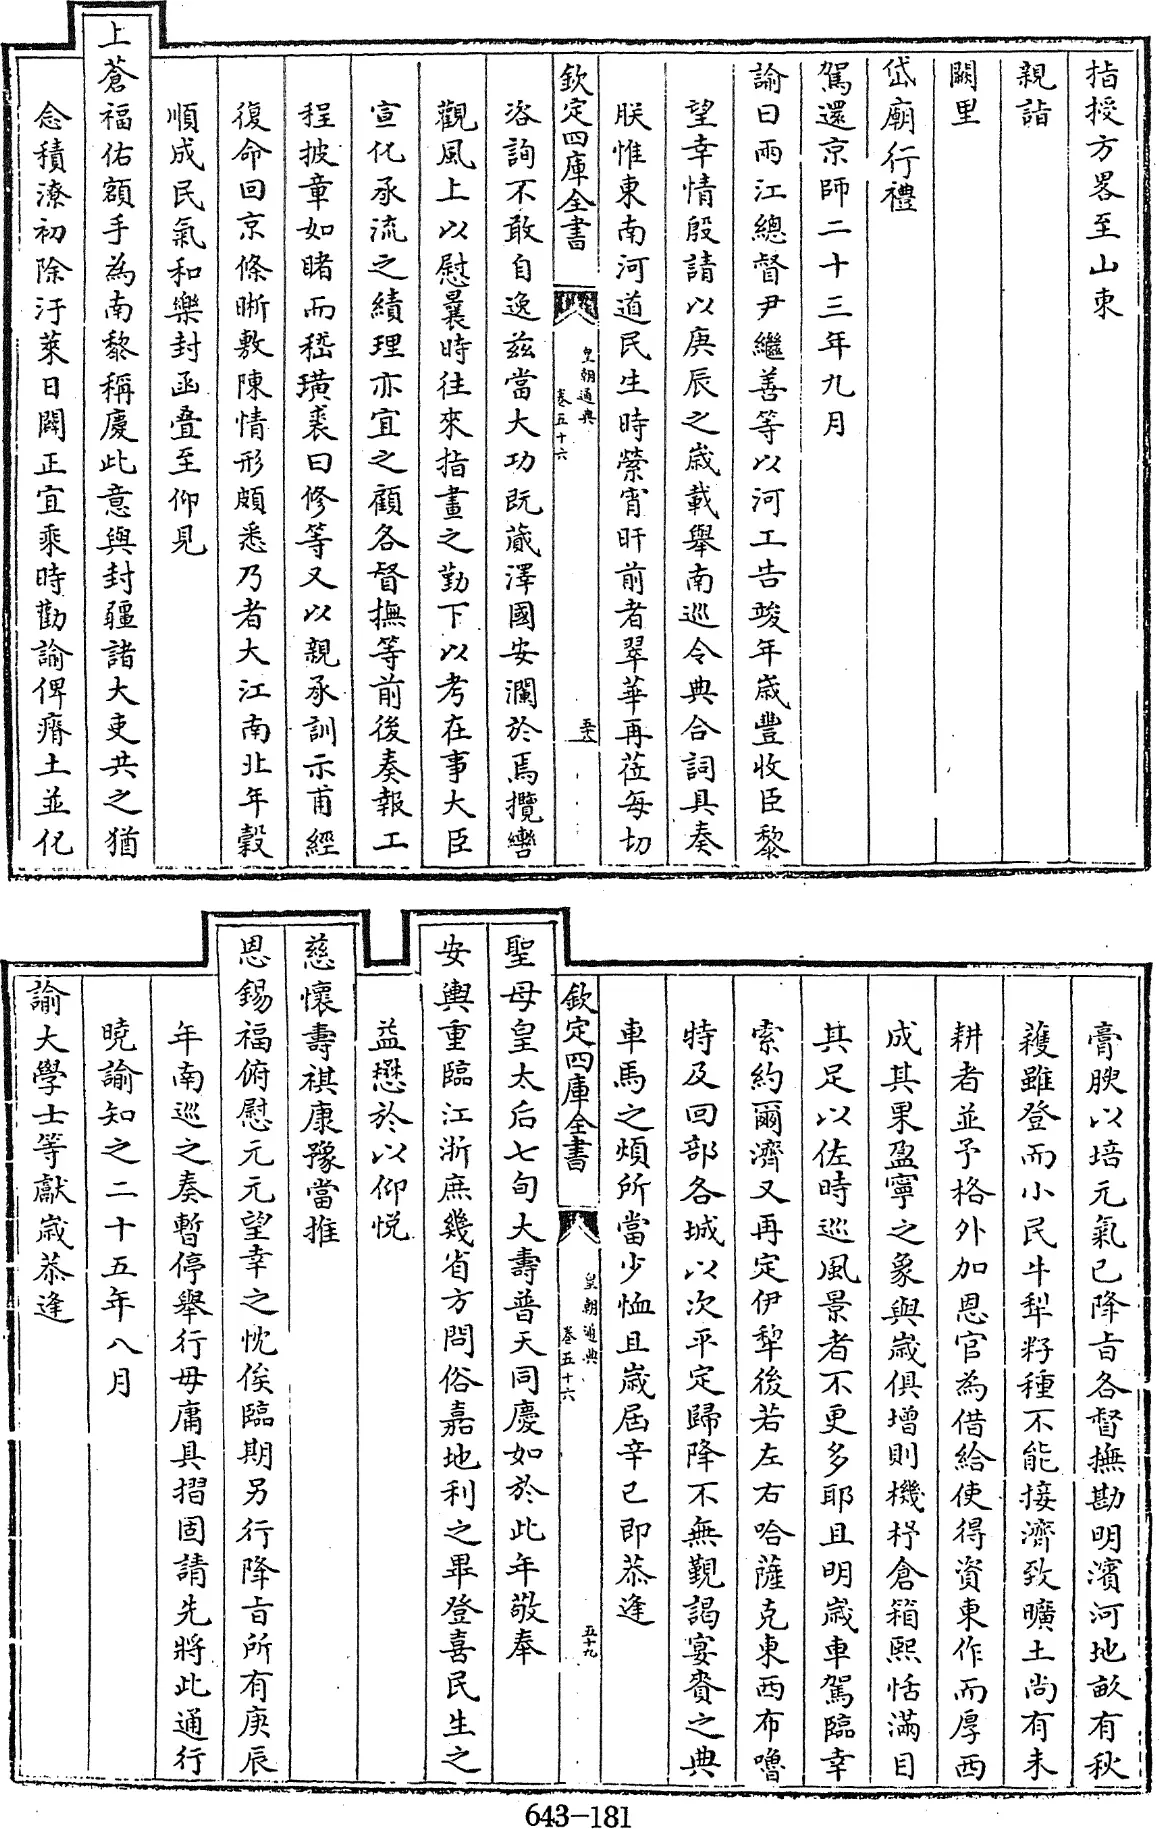 指授方畧至山東
親詣
闕里
岱廟行禮
駕還京師二十三年九月
諭曰兩江總督尹繼善等以河工告竣年歲豐收臣黎
望幸情殷請以庚辰之歲載舉南巡令典合詞具奏
朕惟東南河道民生時縈宵旰前者翠華再莅每切
欽定四庫全書
皇朝通典
卷五十六
咨詢不敢自逸茲當大功既蕆澤國安瀾於焉攬轡
觀風上以慰曩時往來指畫之勤下以考在事大臣
宣化承流之績理亦宜之顧各督撫等前後奏報工
程披章如睹而嵇璜裘曰修等又以親承訓示甫經
復命回京條晰敷陳情形頗悉乃者大江南北年穀
順成民氣和樂封函疊至仰見
上蒼福佑額手為南黎稱慶此意與封疆諸大吏共之猶
念積潦初除汙萊日闢正宜乘時勸諭俾瘠土並化
膏腴以培元氣已降旨各督撫勘明濱河地畝有秋
穫雖登而小民牛犁籽種不能接濟致曠土尚有未
耕者並予格外加恩官為借給使得資東作而厚西
成其果盈寧之象與歲俱增則機杼倉箱熙恬滿目
其足以佐時巡風景者不更多耶且明歲車駕臨幸
索約爾濟又再定伊犂後若左右哈薩克東西布嚕
特及回部各城以次平定歸降不無覲謁宴賚之典
車馬之煩所當少恤且歲屆辛巳即恭逢
欽定四庫全書
皇朝通典
卷五十六
五十九
聖母皇太后七旬大壽普天同慶如於此年敬奉
安輿重臨江浙庶幾省方問俗嘉地利之畢登喜民生之
益懋於以仰悅
慈懷壽祺康豫當推
恩錫福俯慰元元望幸之忱俟臨期另行降旨所有庚辰
年南巡之奏暫停舉行毋庸具摺固請先將此通行
曉諭知之二十五年八月
諭大學士等獻歲恭逢
643-181